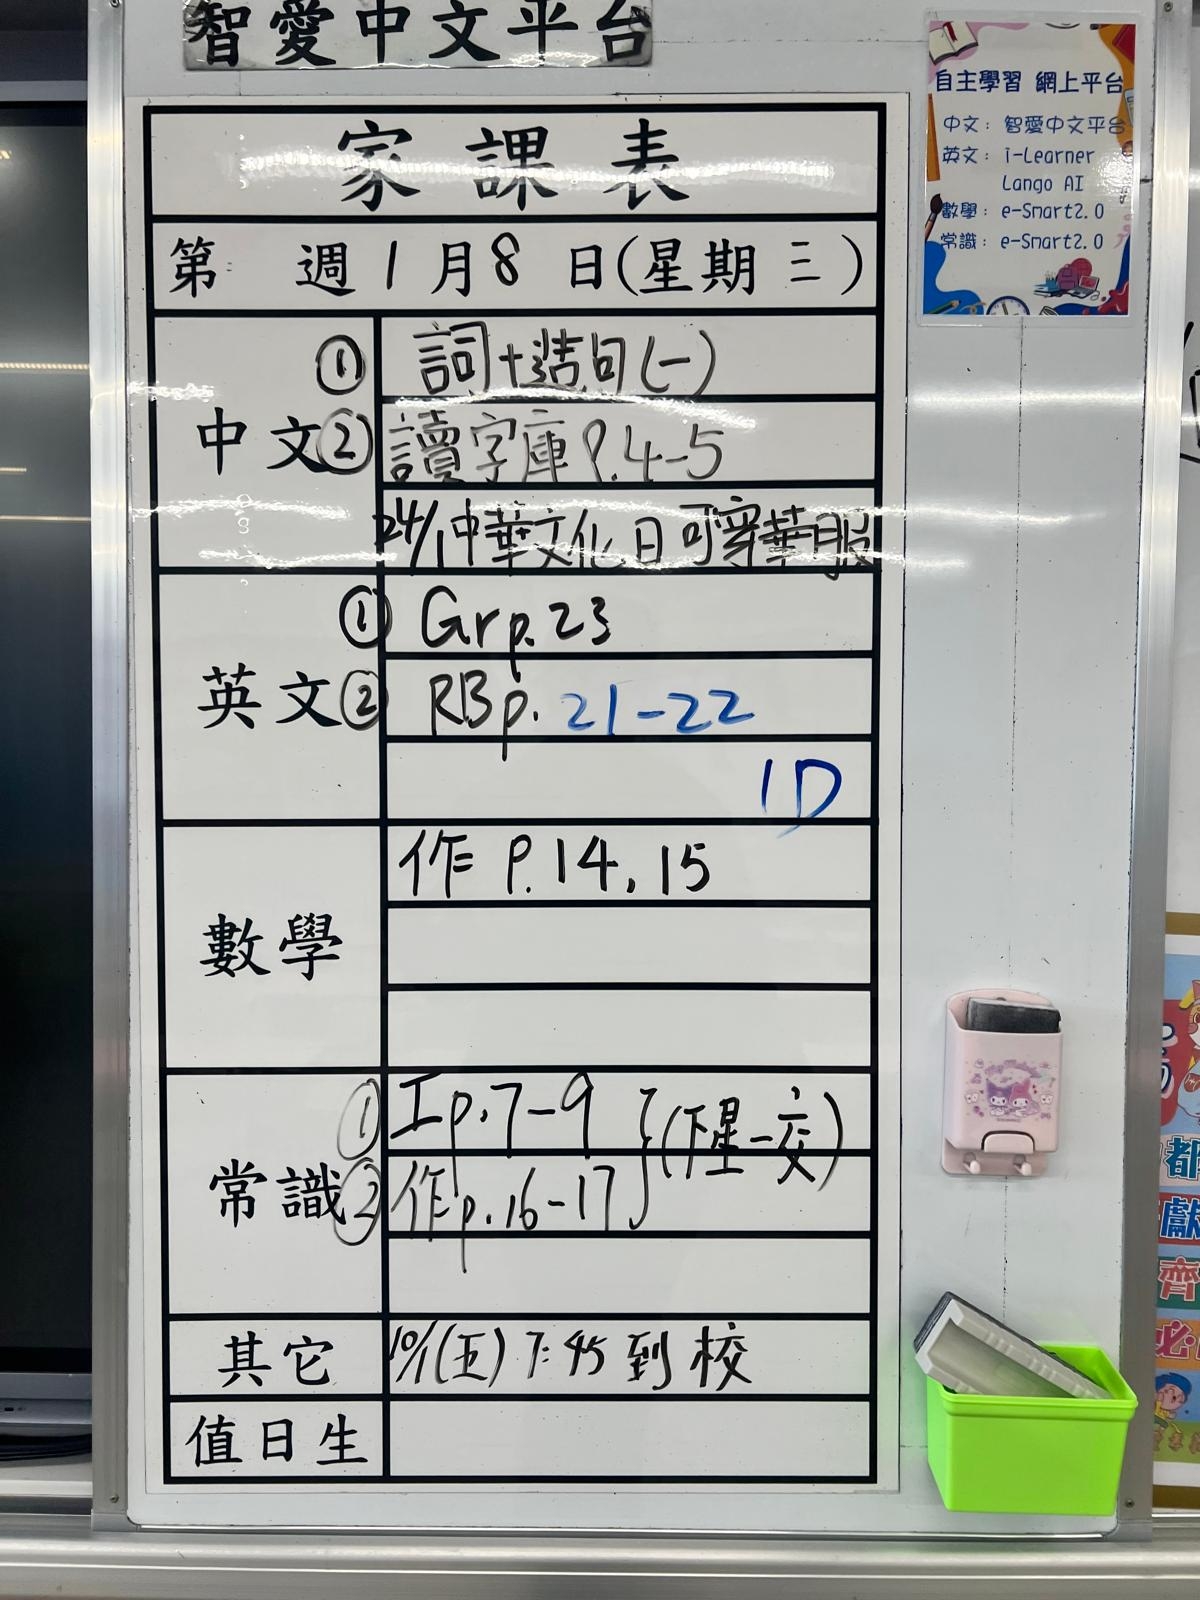 智愛中文平台
自主學習 網上平台
中文：智愛中文平台
英文：i-Learner
Lango AI
數學：e-Smart2.0
常識：e-Smart2.0
家課表
第 週 1 月 8 日(星期三)
中文
① 詞+造句(一)
② 讀字庫 P.4-5
24/1中華文化日可穿華服
英文
① Gr p.23
② RB p. 21-22
1D
數學
作 P.14, 15
常識
① 工p.7-9 } (下星一交)
② 作p.16-17
其它
10/1(五) 7:45 到校
值日生
都
獻
齊
必